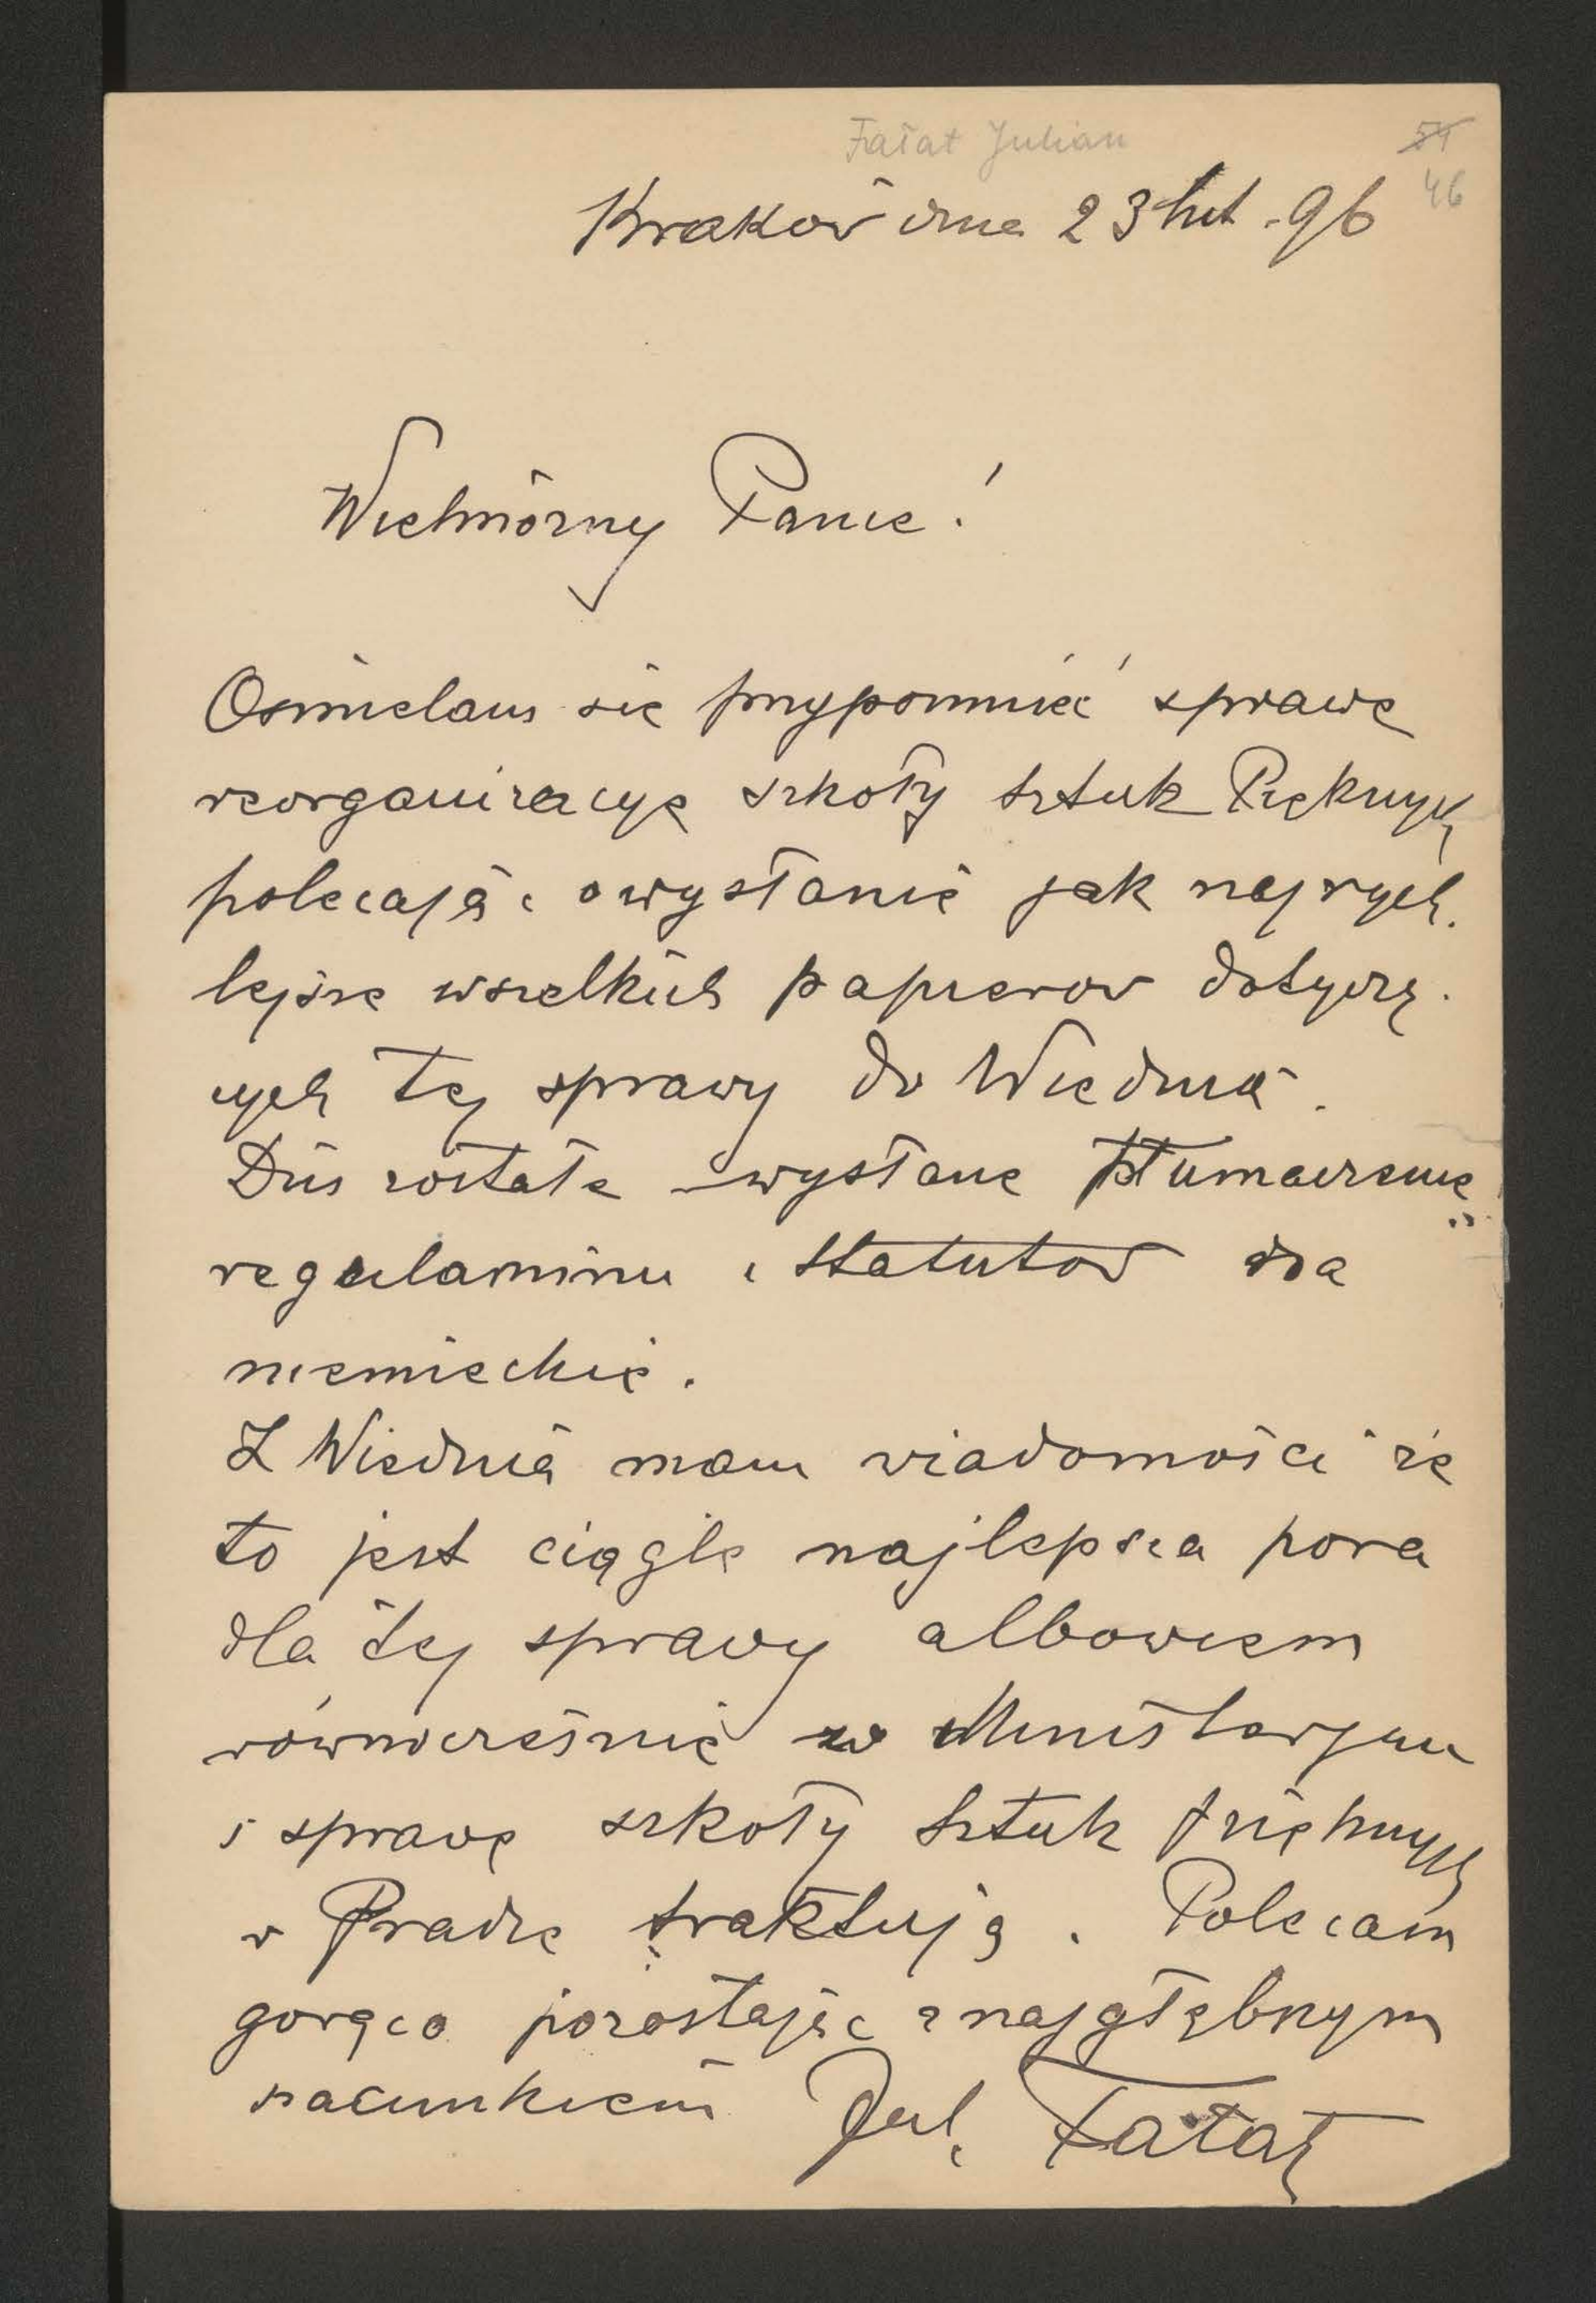 Fałat Julian
51
46
Kraków dnia 23 lut. 96
Wielmożny Panie!
Ośmielam się przypomnieć sprawę
reorganizacyę szkoły Sztuk Pięknych
polecając o wysłanie jak najrych.
lejsze wszelkich papierów dotyczą.
cych tej sprawy do Wiednia.
Dziś zostałe wysłane tłumaczenie
regulaminu i statutów na
niemieckie.
Z Wiednia mam wiadomości że
to jest ciągle najlepsza pora
dla tej sprawy albowiem
równocześnie w Ministerjum
i sprawę szkoły Sztuk Pięknych
w Pradze traktują. Polecam
gorąco pozostając z najgłębszym
szacunkiem Jul. Fałat